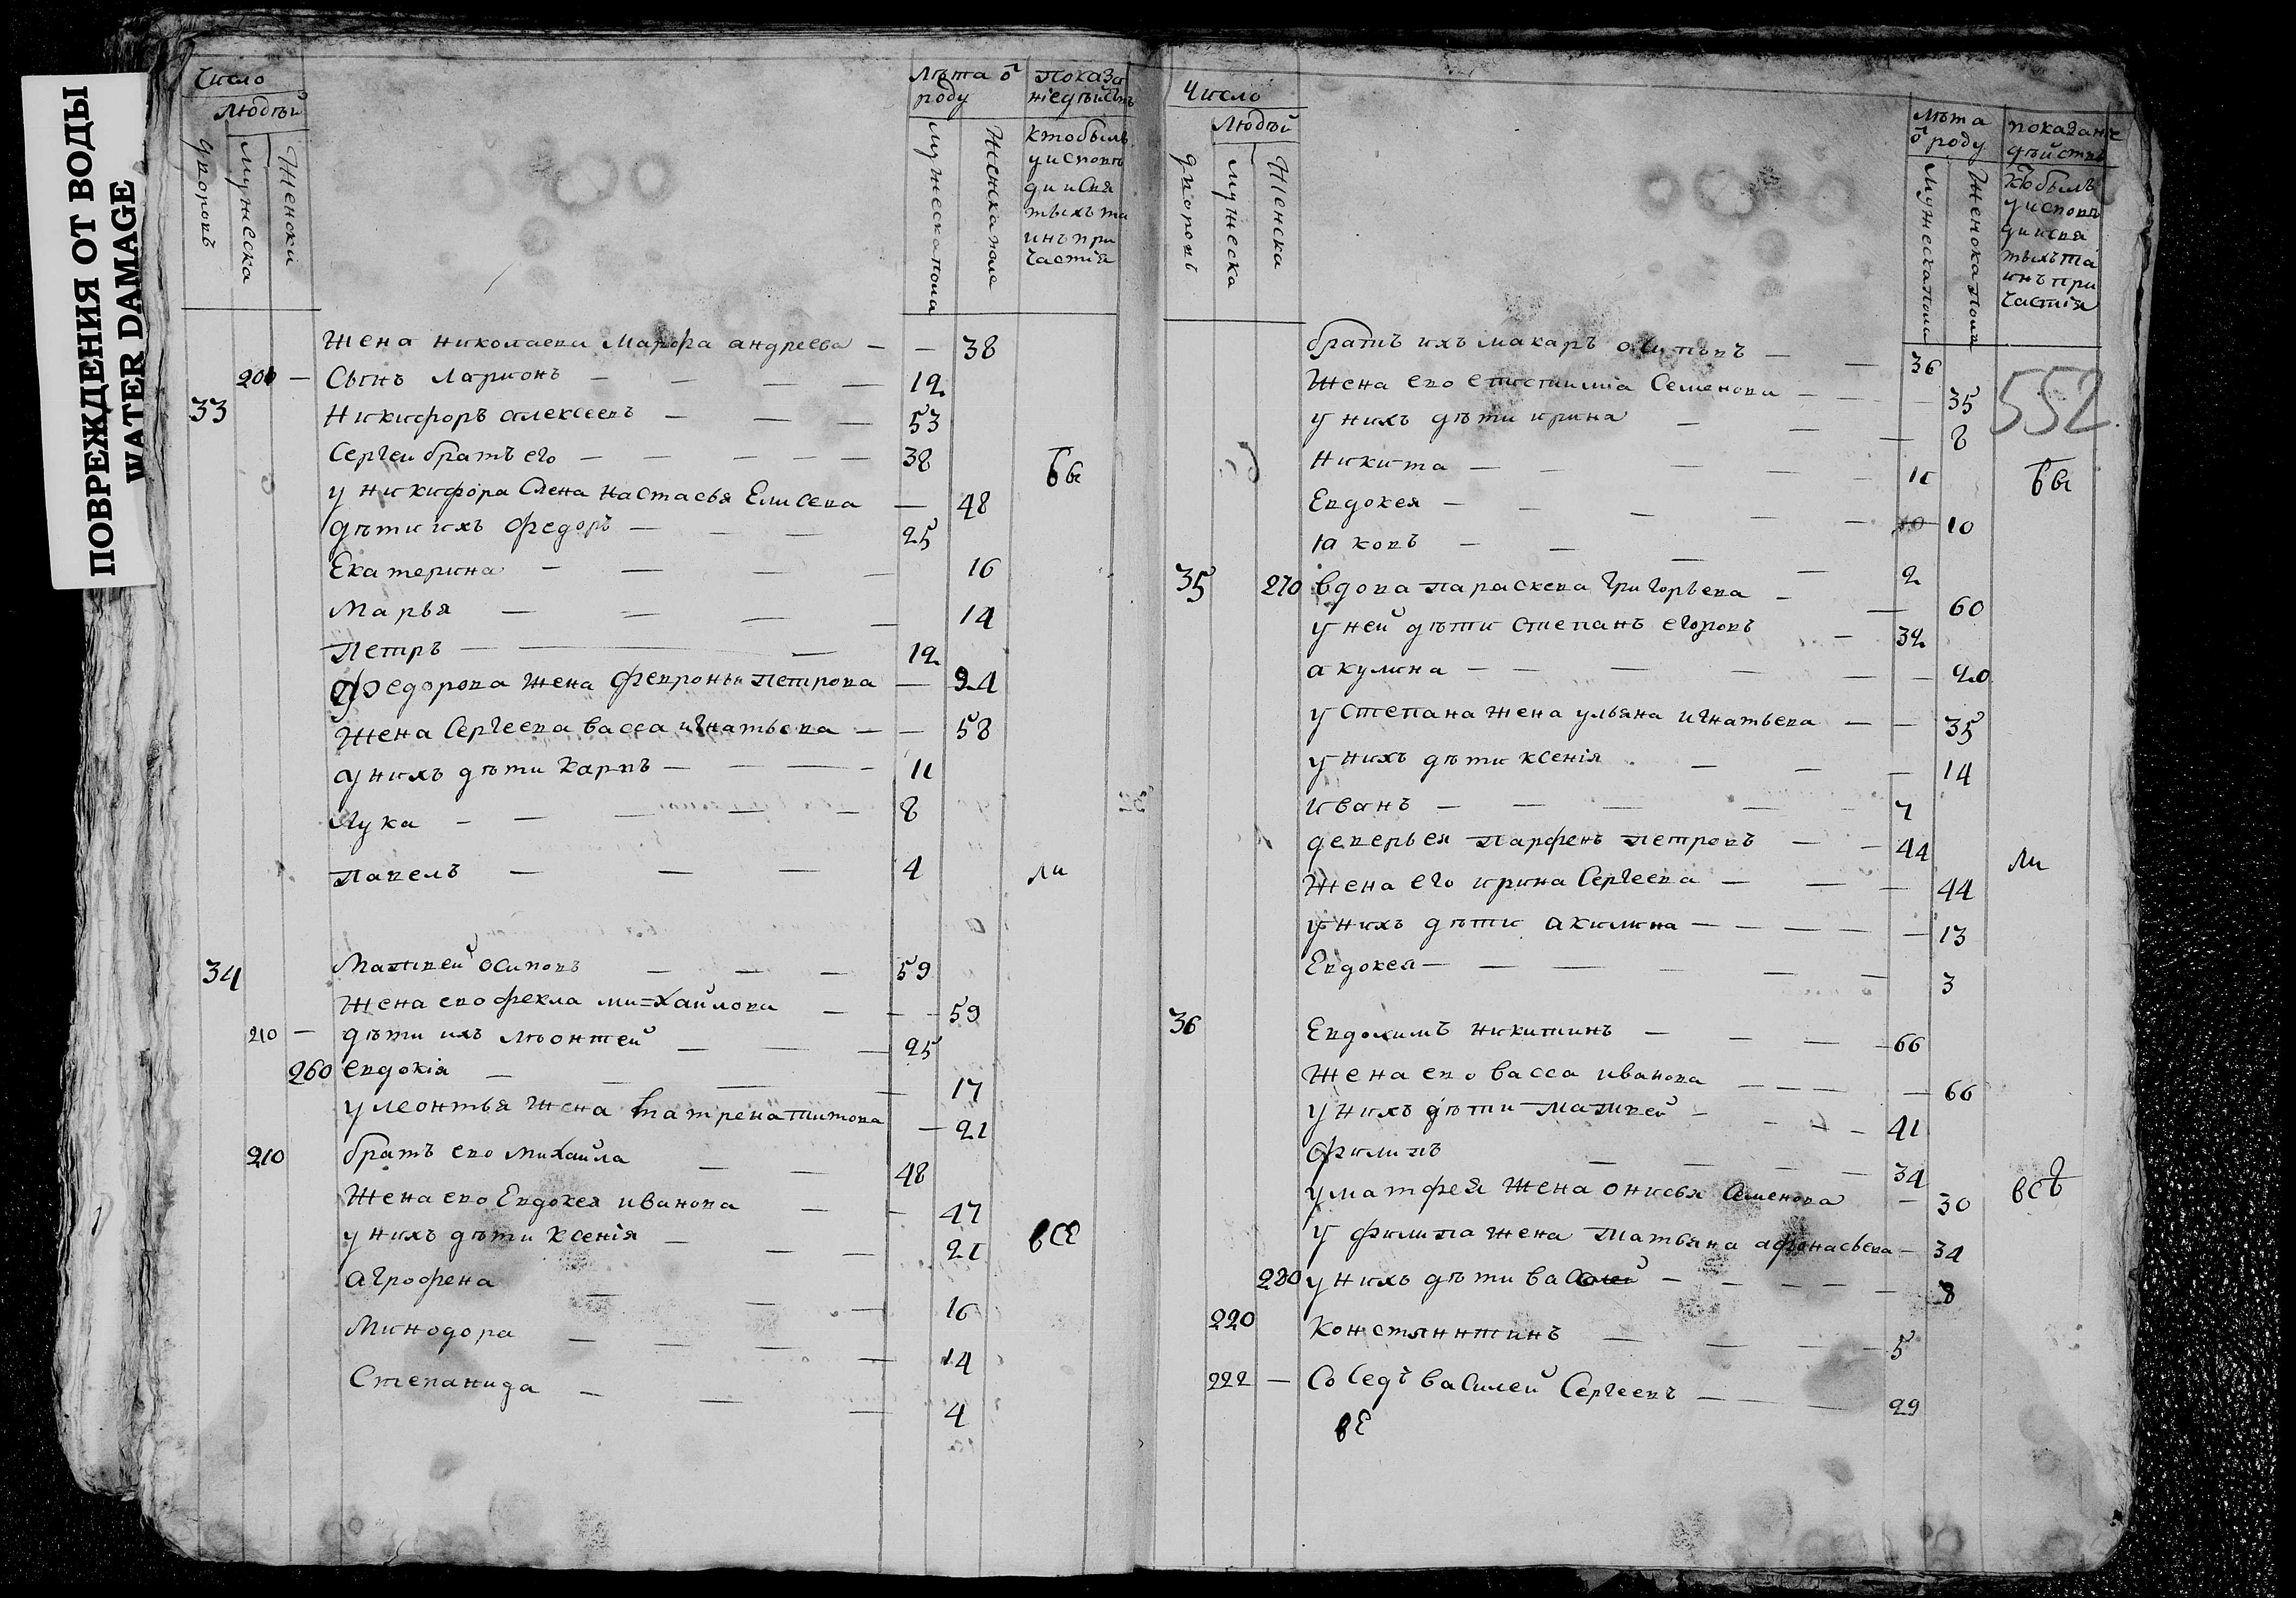 ПОВРЕЖДЕНИЯ ОТ ВОДЫ
WATER DAMAGE
Число
Людѣй
дворовъ
мужеска
Женска
лѣта ѿ
роду
мужеска пола
женска пола
показа
нiе дѣйствъ
кто былъ
у испове
ди и свя
тыхъ та
инъ при
частiя
Жена николаева Марфа андреева — — 38
206 — Сынъ Ларионъ — — — — 12
33 Никифоръ алексеевъ — — — 53
Сергеи братъ его — — — — — 38
бы
у никифора Жена Настасья Елисева — 48
дѣти ихъ федоръ — — — 25
Екатерина — — — — 16
Марья — — — — 14
Петръ — — — 12
федорова жена февронья петрова — 24
Жена Сергеева васса игнатьева — — 58
у нихъ дѣти карпъ — — — — 11
Лука — — — — — 8
павелъ — — — 4
ли
34 Матвей осиповъ — — — 59
Жена ево фекла ми=хайлова — — — 59
210 — дѣти ихъ лѣонтей — — — 25
260 евдокiя — — — — 17
у леонтья жена матрена титова — 21
210 братъ ево михаила — — 48
Жена ево Евдокея иванова — — 47
у нихъ дѣти ксенiя — — — 21
всѣ
агрофена — — — 16
Минодора — — — — 14
Степанида — — — 4
Число
Людѣй
дворовъ
мужеска
Женска
лѣта
ѿ роду
мужеска пола
женска пола
показанiе
дѣйствъ
кто былъ
у испове
ди и свя
тыхъ та
инъ при
частiя
552
братъ ихъ макаръ осиповъ — — 36
Жена ево епистимiа Семенова — — — 35
у нихъ дѣти ирина — — — 8
Никита — — — — — 11
бы
Евдокея — — — — — 10
Iаковъ — — — — 2
35 270 вдова параскева григорьева — — 60
у ней дѣти степанъ егоровъ — 32
акулина — — — — — — 20
у степана жена ульяна игнатьева — — 35
у нихъ дѣти ксенiя — — — 14
иванъ — — — — — 7
деверья парфенъ петровъ — — 44
ли
Жена его ирина Сергеева — — — 44
у нихъ дѣти акилина — — — — — 13
Евдокея — — — — — — 3
36 Евдокимъ никитинъ — — — — 66
Жена ево васса иванова — — — — 66
у нихъ дѣти матвей — — — — 41
филипъ — — — — 34
у матфея жена онисья Семенова — 30
всѣ
у филипа жена татьяна афонасьева — 34
280 у нихъ дѣти — — — — — 8
220 Константинъ — — — — 5
222 — Соседъ василей Сергеевъ — — — 29